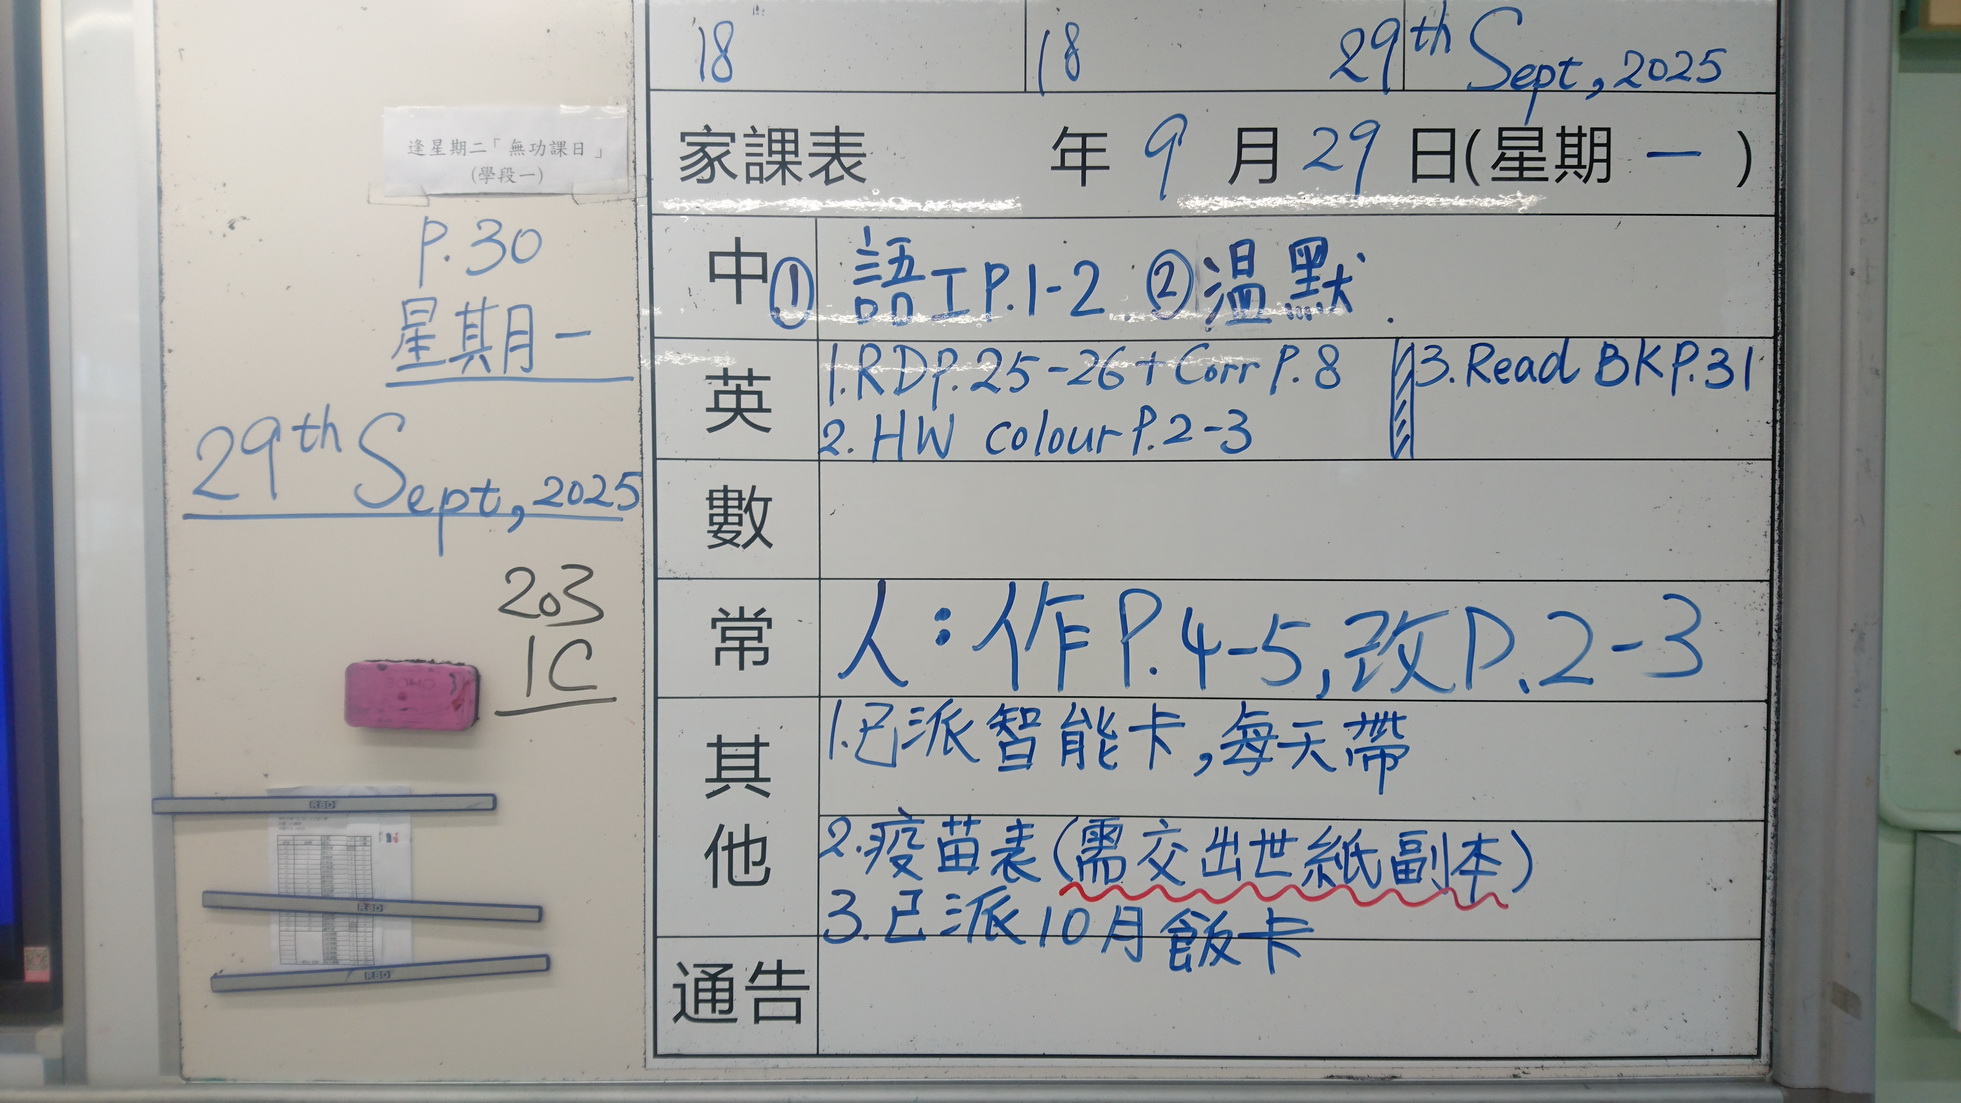 18 18 29th Sept, 2025
家課表 年 9 月 29 日(星期 一 )
逢星期二「無功課日」
(學段一)
P.30
星期一
29th Sept, 2025
203
1C
中 ① 語工P.1-2 ②温默.
英 1.RDP.25-26+Corr P.8 3.Read BKP.31
2. HW colour P.2-3
數
常 人:作P.4-5,改P.2-3
其他 1.已派智能卡,每天帶
2.疫苗表(需交出世紙副本)
3.已派10月飯卡
通告
RBD
RBD
RBD